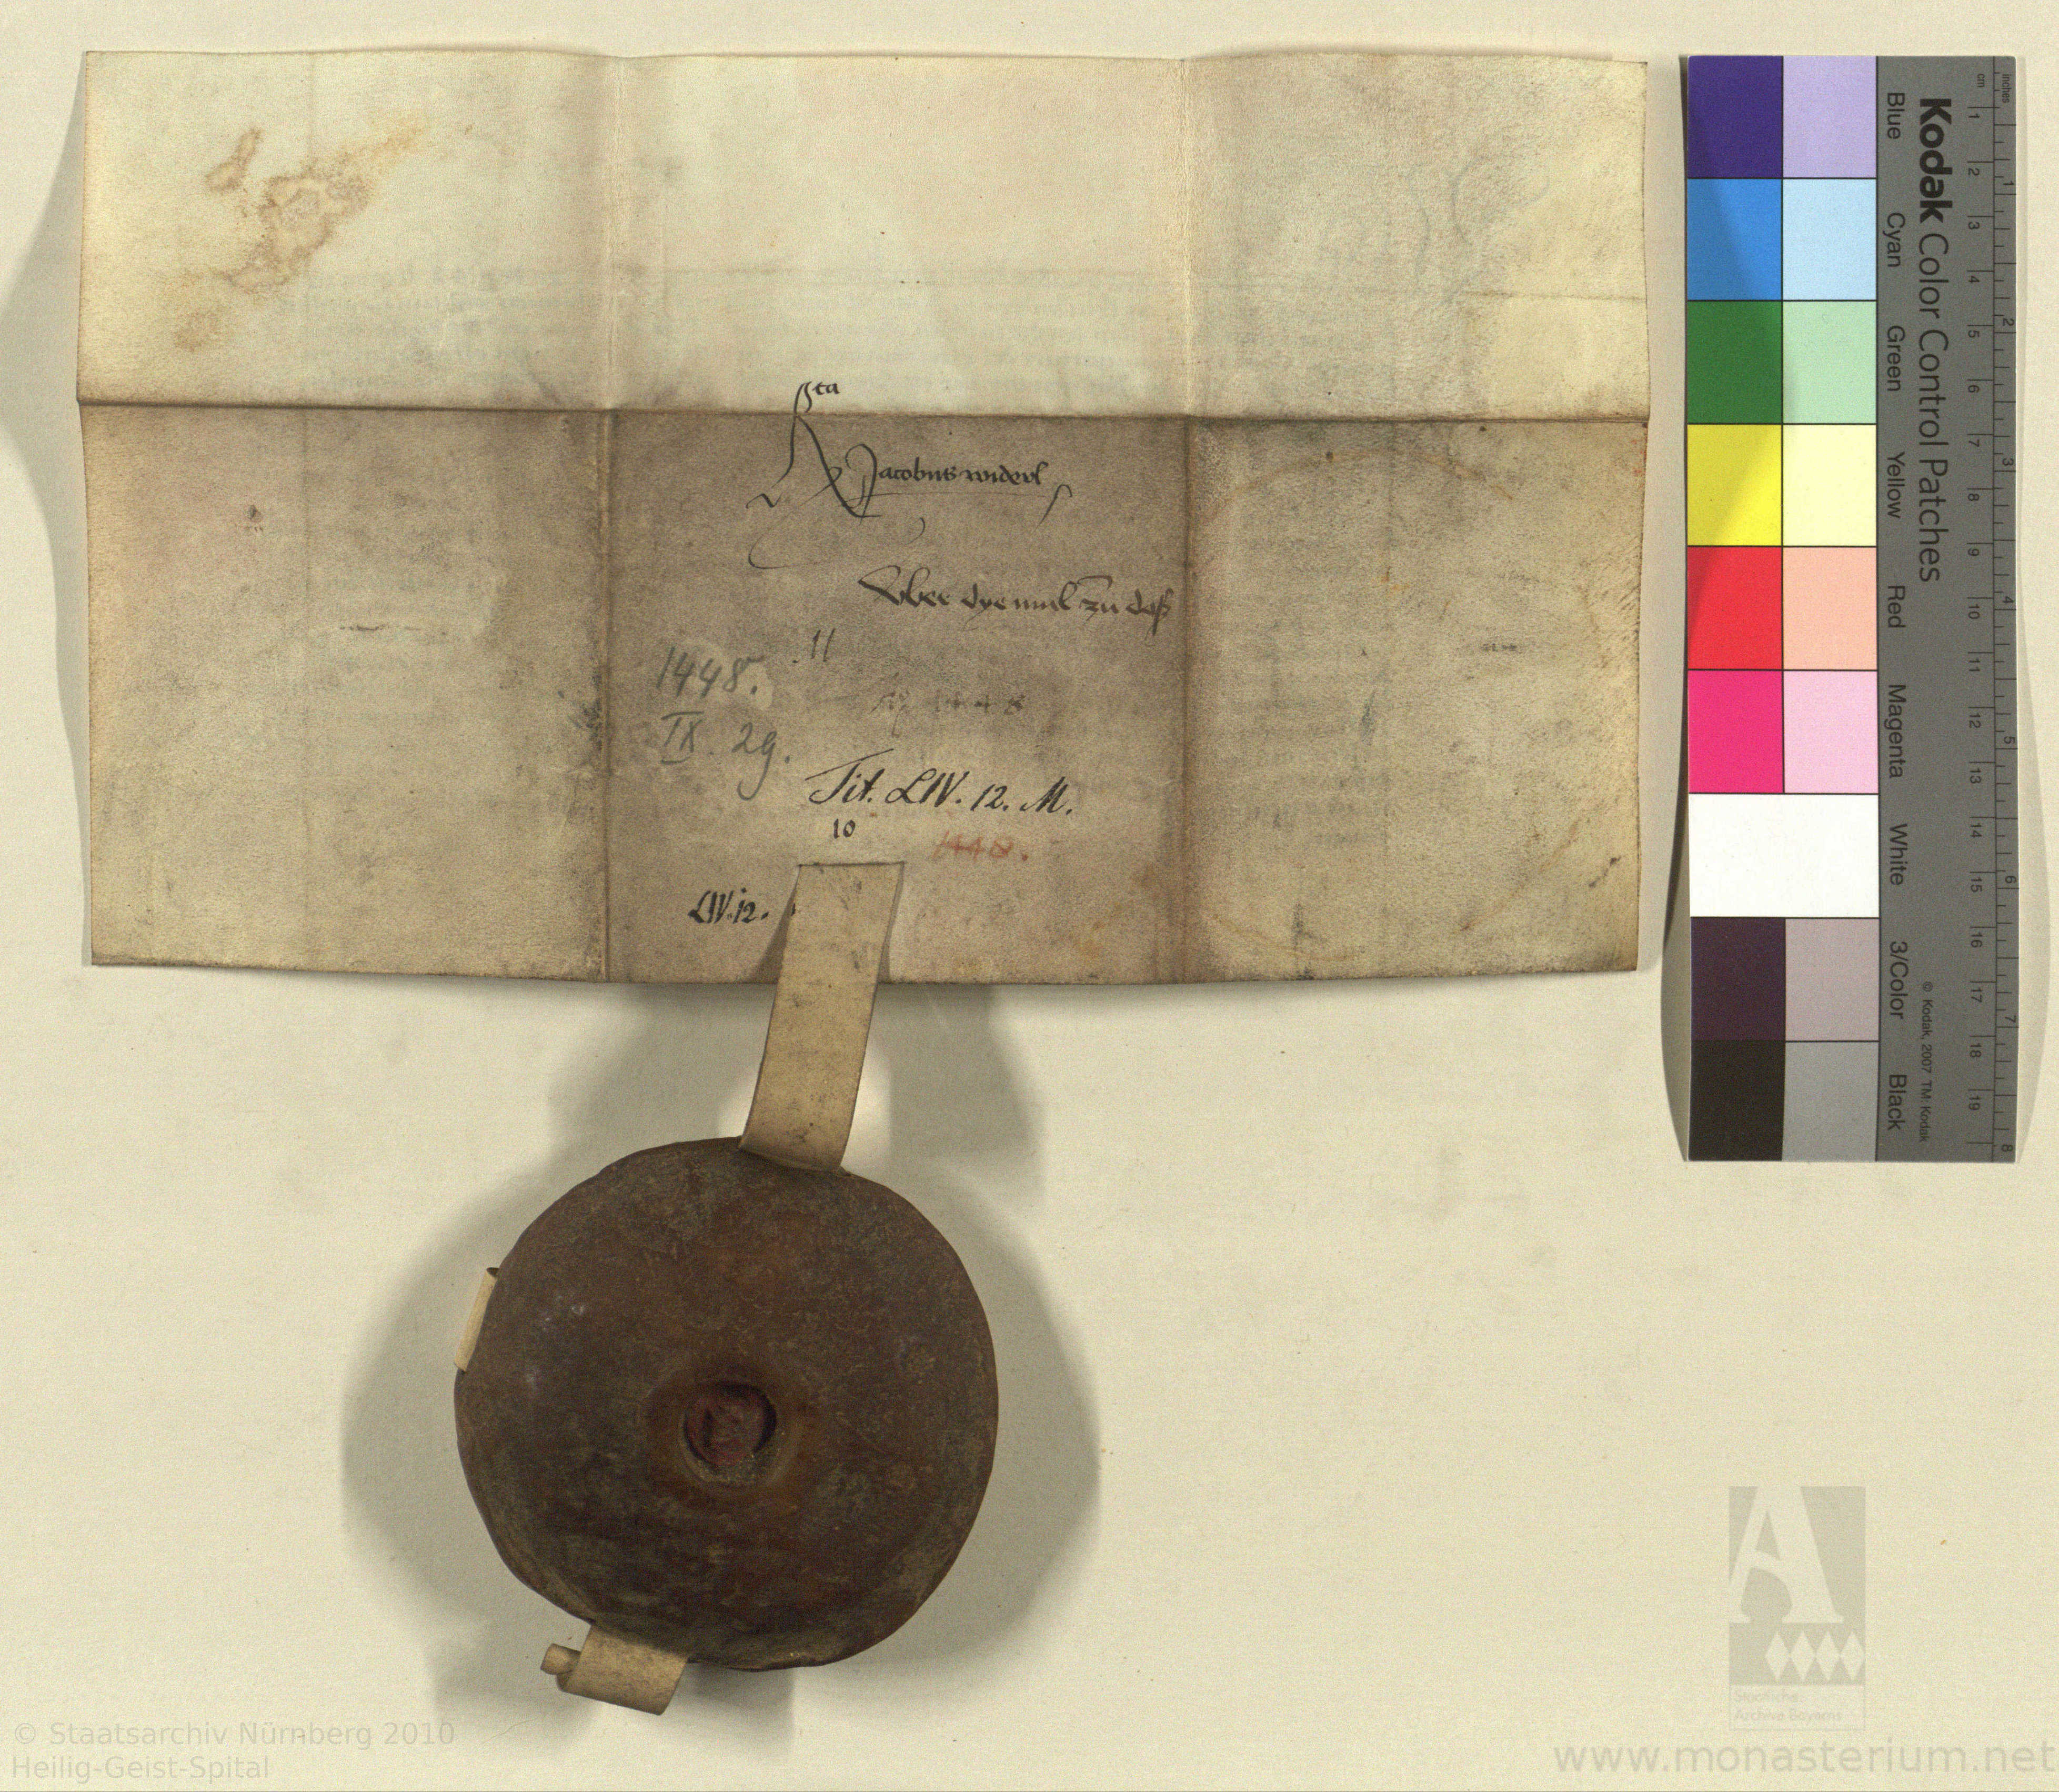 R^ta
Jacobus widerl
Vber dye mul zu deß
11
1448.
IX. 29.
1448
Tit. LIV. 12. M.
10
1448.
LIV. 12.
Kodak Color Control Patches
Blue
Cyan
Green
Yellow
Red
Magenta
White
3/Color
Black
© Kodak, 2007 TM: Kodak
cm 1 2 3 4 5 6 7 8 9 10 11 12 13 14 15 16 17 18 19
inches 1 2 3 4 5 6 7 8
Staatliche
Archive Bayerns
© Staatsarchiv Nürnberg 2010
Heilig-Geist-Spital
www.monasterium.net